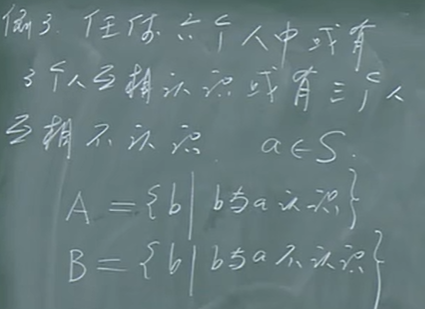 例3. 任何六个人中或有
3个人互相认识或有三个人
互相不认识. a∈S.
A = {b | b与a认识}
B = {b | b与a不认识}